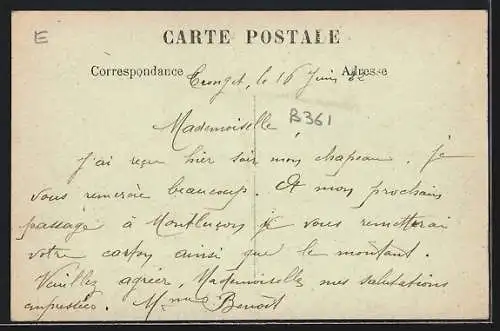 E
CARTE POSTALE
Correspondance Adresse
Tronget, le 16 Juin
Mademoiselle,
B361
J'ai reçu hier soir mon chapeau. Je
vous remercie beaucoup. A mon prochain
passage à Montluçon je vous remettrai
votre carton ainsi que le montant.
Veuillez agréer, Mademoiselle, mes salutations
empressées. Mme Benoit